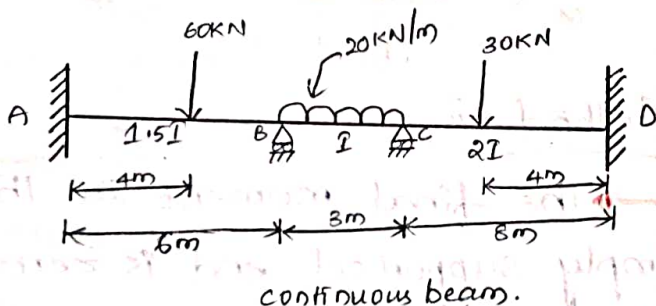 60KN
20KN/m
30KN
A
B
C
D
1.5I
I
2I
4m
4m
6m
3m
8m
continuous beam.